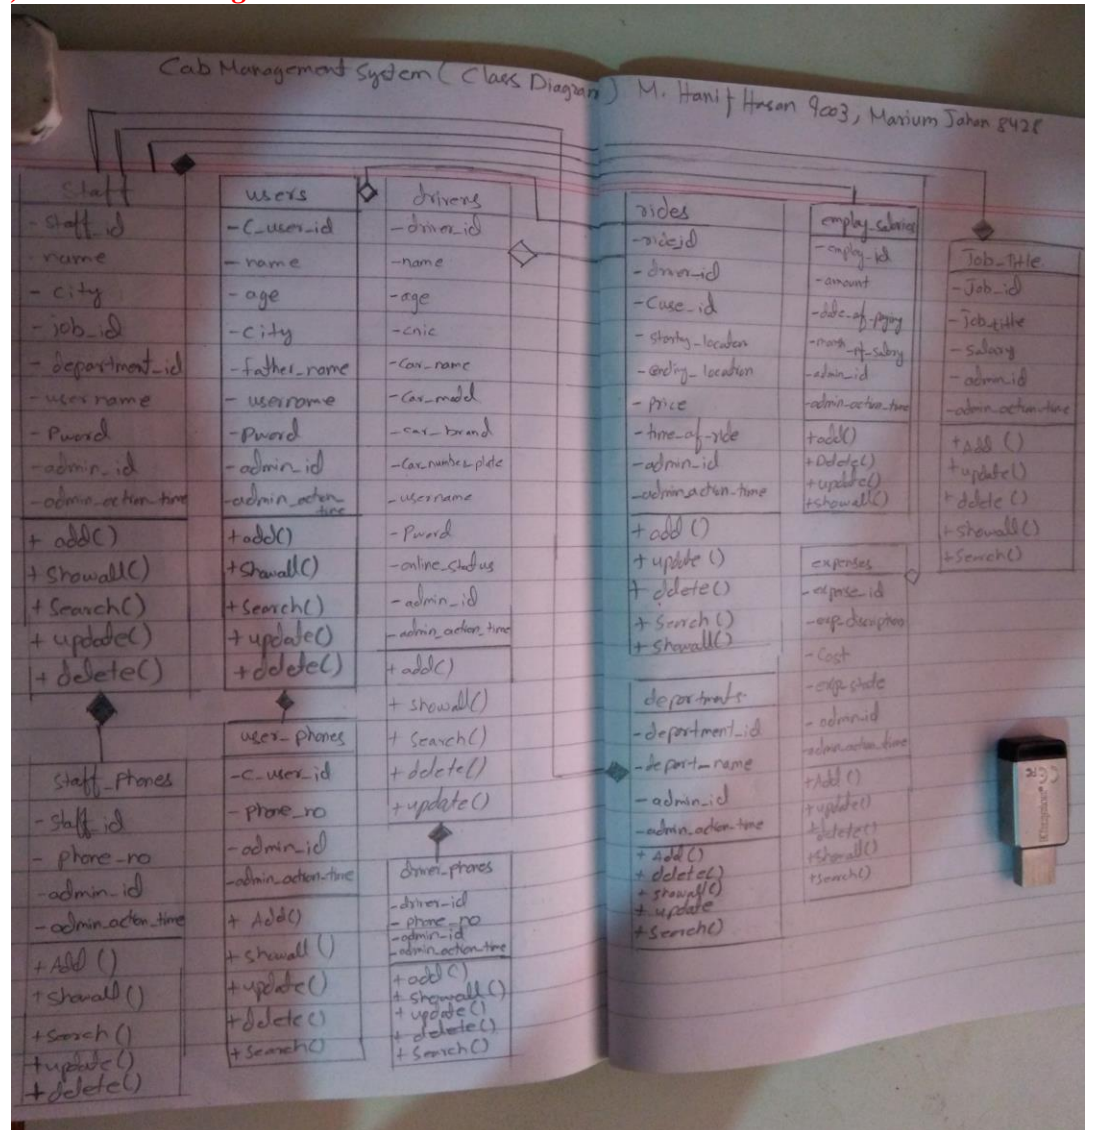 Cab Management System ( Class Diagram ) M. Hanif Hasan 9003, Marium Jahan 8428
Staff
- staff_id
name
- city
- job_id
- department_id
- username
- Pword
- admin_id
- admin_action_time
+ add()
+ showall()
+ Search()
+ update()
+ delete()
users
- C_user_id
- name
- age
- city
- father_name
- username
- Pword
- admin_id
- admin_action_
time
+ add()
+ showall()
+ Search()
+ update()
+ delete()
drivers
- driver_id
- name
- age
- cnic
- Car_name
- Car_model
- car_brand
- Car_number_plate
- username
- Pword
- online_status
- admin_id
- admin_action_time
+ add()
+ showall()
+ Search()
+ delete()
+ update()
Staff_Phones
- staff_id
- phone_no
- admin_id
- admin_action_time
+ Add ()
+ showall()
+ Search()
+ update()
+ delete()
user_phones
- C_user_id
- phone_no
- admin_id
- admin_action_time
+ Add()
+ showall ()
+ update()
+ delete()
+ Search()
driver_phones
- driver_id
- phone_no
- admin_id
- admin_action_time
+ add()
+ showall()
+ update()
+ delete()
+ Search()
rides
- rideid
- driver_id
- Cuse_id
- starting_location
- ending_location
- Price
- time_of_ride
- admin_id
- admin_action_time
+ add ()
+ update ()
+ delete()
+ Search()
+ showall()
departments
- department_id
- depart_name
- admin_id
- admin_action_time
+ Add()
+ delete()
+ showall()
+ update
+ Search()
employ_salaries
- employ_id
- amount
- date_of_paying
- month
_of_salary
- admin_id
- admin_action_time
+ add()
+ Delete()
+ update()
+ showall()
expenses
- expense_id
- exp_discription
- Cost
- admin_id
- admin_action_time
+ Add()
+ update()
+ delete()
+ showall()
+ Search()
Job_Title
- Job_id
- job_title
- salary
- admin_id
- admin_action_time
+ Add ()
+ update()
+ delete ()
+ showall()
+ Search()
Kingston